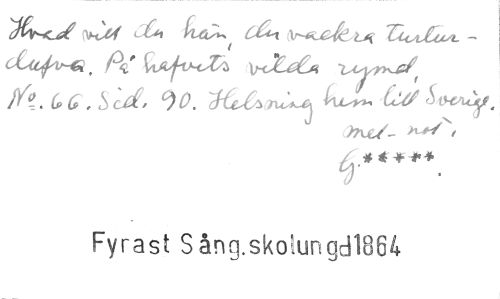 Hvad vill du här, du vackra turtur-
dufva. På hafvets vilda rymd,
No. 66. Sid. 90. Helsning hem till Sverige.
mel-not.
G.*****.
Fyrast Sång.skolungd1864